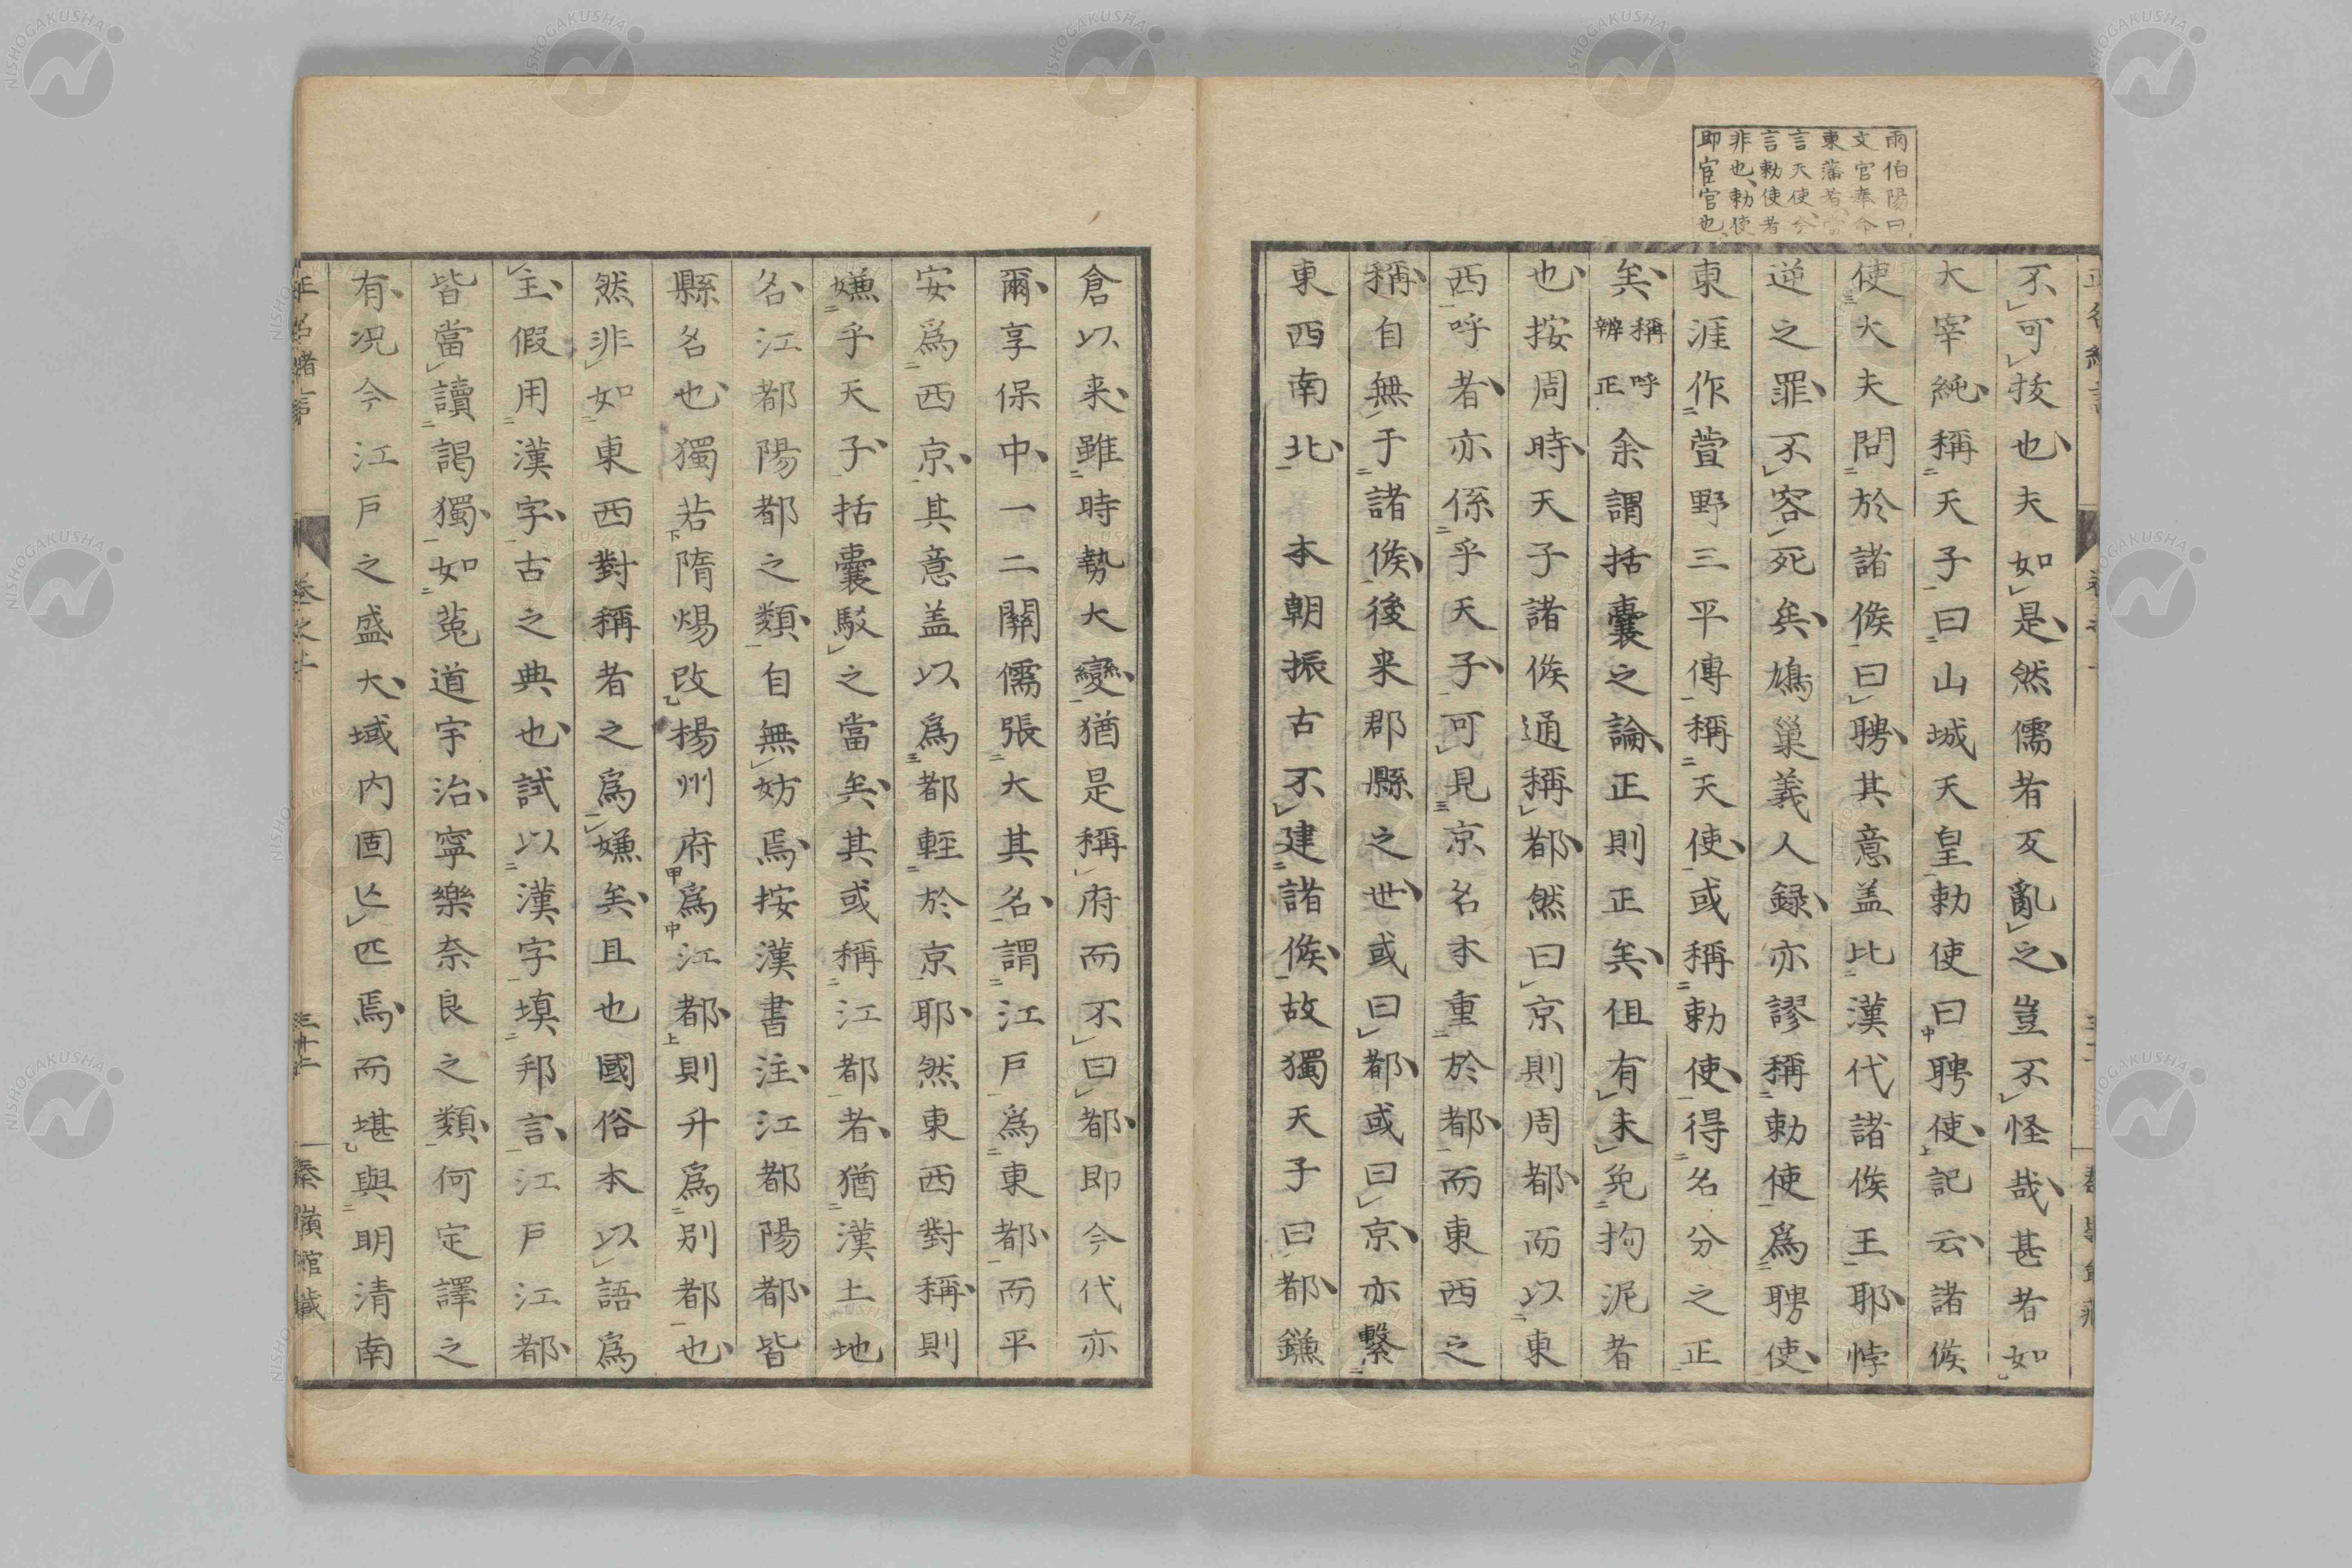 雨伯陽曰
文官奉命
東藩者當
言天使今
言勅使者
非也勅使
即宦官也
不可拔也夫如是然儒者又亂之豈不怪哉甚者如
大宰純稱天子曰山城天皇勅使曰聘使記云諸侯
使大夫問於諸侯曰聘其意盖比漢代諸侯王耶悖
逆之罪不容死矣鳩巢義人録亦謬稱勅使爲聘使
東涯作萱野三平傳稱天使或稱勅使得名分之正
矣稱呼辨正余謂括囊之論正則正矣但有未免拘泥者
也按周時天子諸侯通稱都然曰京則周都而以東
西呼者亦係乎天子可見京名本重於都而東西之
稱自無于諸侯後来郡縣之世或曰都或曰京亦繫
東西南北 本朝振古不建諸侯故獨天子曰都鎌
倉以来雖時勢大變猶是稱府而不曰都即今代亦
爾享保中一二關儒張大其名謂江戸爲東都而平
安爲西京其意盖以爲都輕於京耶然東西對稱則
嫌乎天子括囊駁之當矣其或稱江都者猶漢土地
名江都陽都之類自無妨焉按漢書注江都陽都皆
縣名也獨若隋煬改楊州府爲江都則升爲別都也
然非如東西對稱者之爲嫌矣且也國俗本以語爲
主假用漢字古之典也試以漢字塡邦言江戸江都
皆當讀謁獨如菟道宇治寧樂奈良之類何定譯之
有况今江戸之盛大域内固亾匹焉而堪與明清南